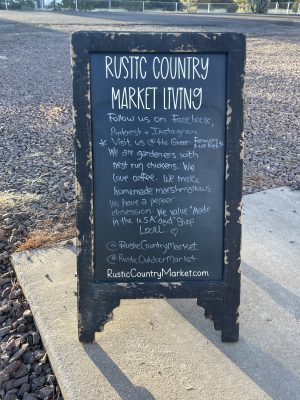 RUSTIC COUNTRY
MARKET LIVING
Follow us on Facebook,
Pinterest & Instagram
* Visit us @ the Green Farmers Market
We are gardeners with
nest run chickens. We
love coffee. We make
homemade marshmallows
We have a pepper
obsession. We value "Made
in the U.S.A." and "Shop
Local. ♡
@RusticCountryMarket
@RusticOutdoorMarket
RUSTICCOUNTRYMARKET.COM